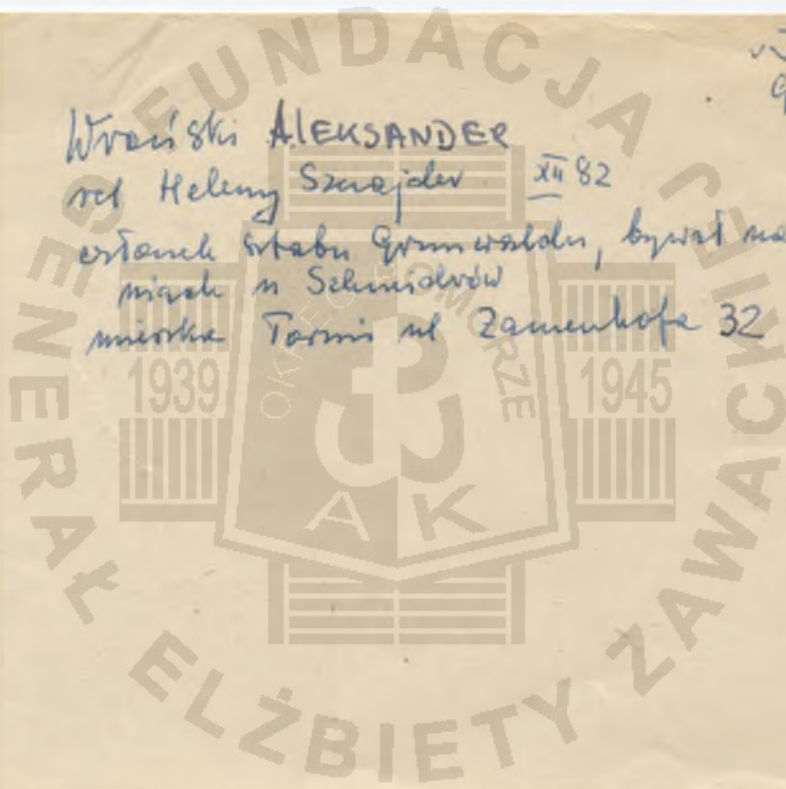 Wroński ALEKSANDER
rel Heleny Sznajder XII 82
członek sztabu Grunwaldu, bywał na
niach u Schmidrów
mieszka Toruń ul Zamenhofa 32
FUNDACJA GENERAŁ ELŻBIETY ZAWACKIEJ
OKRĘG POMORZE
1939
1945
AK